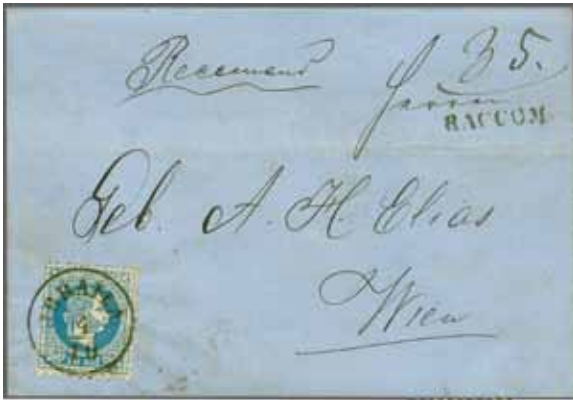 Recomand
35.
Herrn
RACCOM.
Geb. A. H. Elias
Wien
IBRAILA